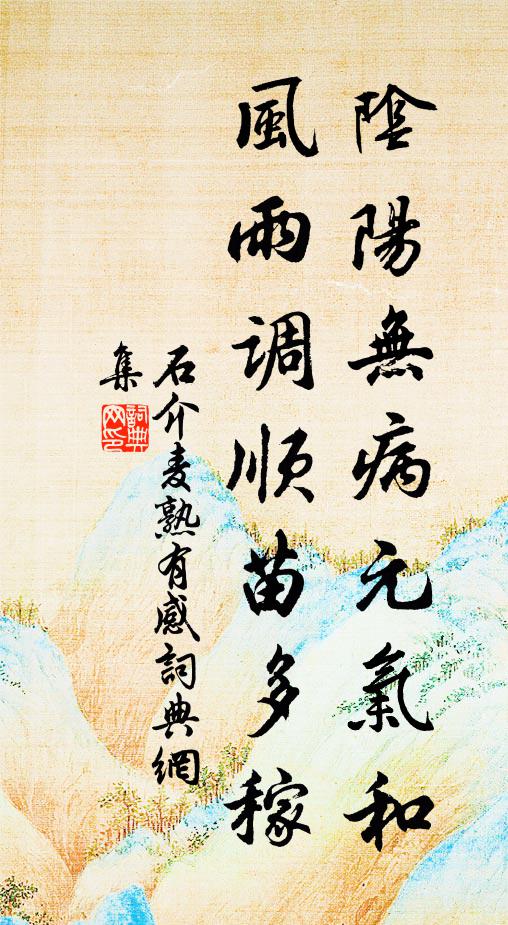 陰陽無病元氣和
風雨調順苗多稼
石介麦熟有感詞典網
集
詞典
网印